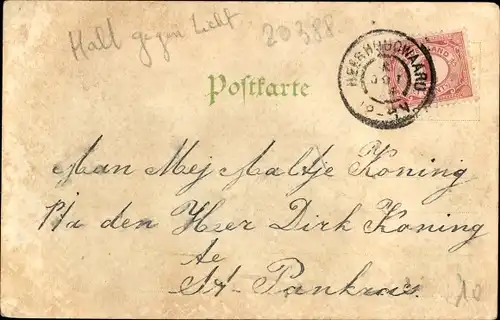 Halt gegen Licht
20388
HEERHUGOWAARD
Postkarte
Aan Mej Maltje Koning
P/a den Heer Dirk Koning
te
St. Pankras.
10